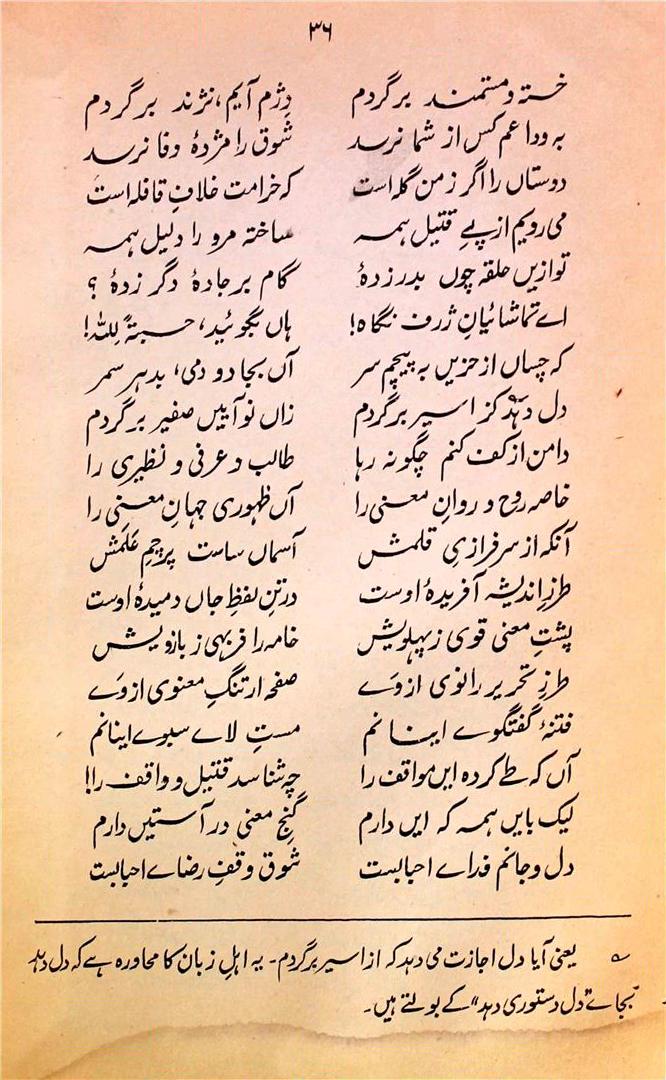 ۳۶
خستہ و مستمند برگردم دژم آیم، نژند برگردم
بہ وداعم کس از شما نرسد شوق را مژدۂ وفا نرسد
دوستاں را اگر ز من گلہ است کہ خرامت خلافِ قافلہ است
می رویم از پےِ قتیل ہمہ ساختہ مرو را دلیل ہمہ
تو ازیں حلقہ چوں بدر زدۂ گام بر جادۂ دگر زدۂ ؟
اے تماشائیانِ ژرف نگاہ! ہاں بگوئید، حسبتہً للہ!
کہ چساں از حزیں بہ پیچم سر آں بجادو دمی، بدہر سمر
دل دہد کز اسیر برگردم زاں نو آییں صفیر برگردم
دامن از کف کنم چگونہ رہا طالب و عرفی و نظیری را
خاصہ روح و روانِ معنی را آں ظہوری جہانِ معنی را
آنکہ از سرفرازیِ قلمش آسماں ساست پرچمِ عَلمش
طرزِ اندیشہ آفریدۂ اوست در تنِ لفظ جاں دمیدۂ اوست
پشتِ معنی قوی ز پہلویش خامہ را فربہی ز بازویش
طرزِ تحریر را نوی از وَے صفحہ ارتنگِ معنوی از وَے
فتنۂ گفتگوے اینانم مستِ لاے سبوے اینانم
آں کہ طے کردہ ایں مواقف را چہ شناسد قتیل و واقف را!
لیک بایں ہمہ کہ ایں دارم گنجِ معنی در آستیں دارم
دل و جانم فداے احبابست شوق وقفِ رضاے احبابست
؎ یعنی آیا دل اجازت می دہد کہ از اسیر برگردم۔ یہ اہلِ زبان کا محاورہ ہے کہ دل دہد
بجاے "دل دستوری دہد" کے بولتے ہیں۔